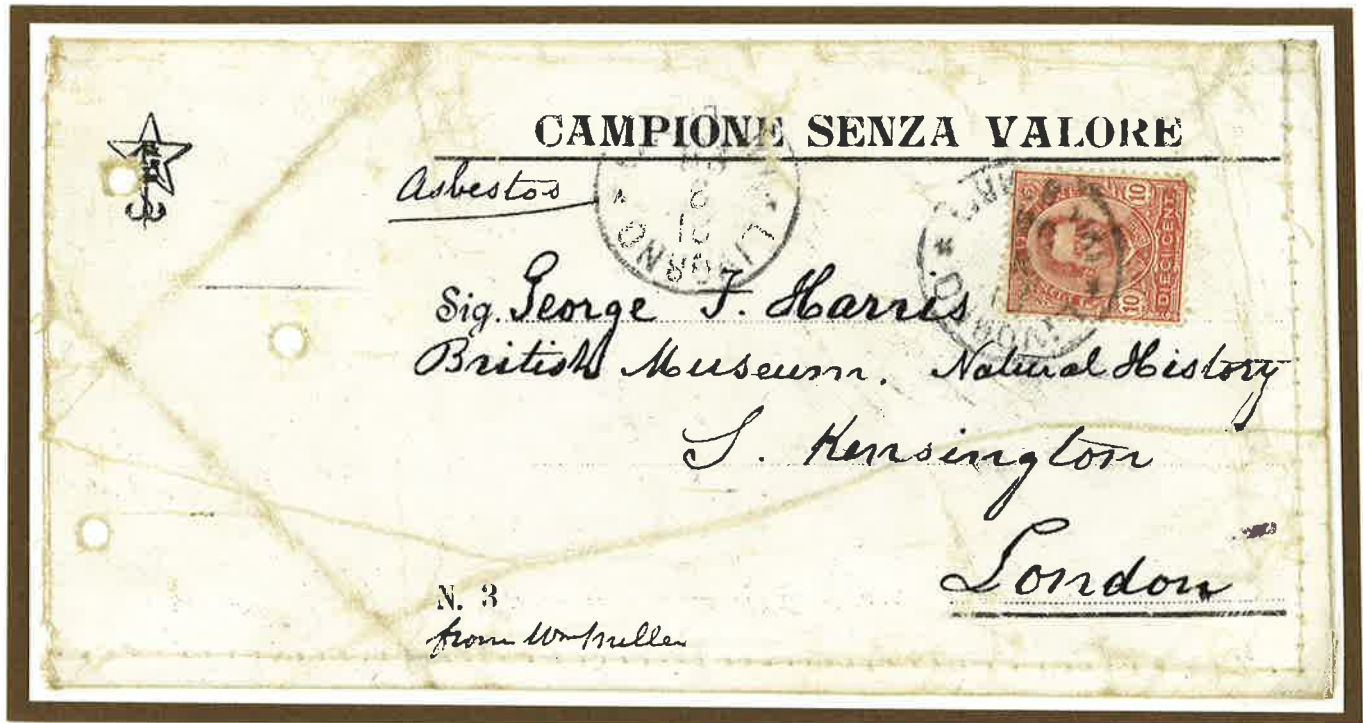 CAMPIONE SENZA VALORE
Asbestos
LIVORNO
10
DIECI CENT
10
Sig. George F. Harris
British Museum. Natural History
S. Kensington
London
N. 3
from Wm